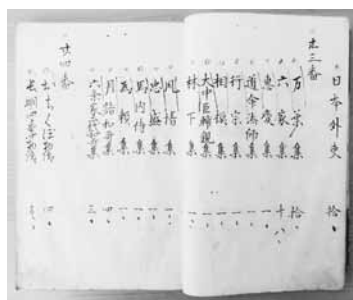 日本外史 拾、
廿三番
万葉集 拾、
六家集 十八、
恵慶集 一、
道命法師集 一、
行宗集 一、
相模集 一、
大中臣輔親集 一、
林下集 一、
風情集 一、
忠盛集 一、
馬内侍集 一、
為頼集 一、
月詣和哥集 四、
六条
集 三、
廿四番
おちくほ物語 四、